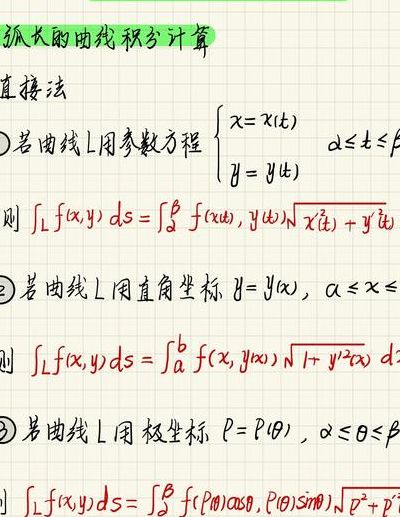 弧长的曲线积分计算
直接法
① 若曲线L用参数方程 { x = x(t) y = y(t) α ≤ t ≤ β
则 ∫_L f(x,y) ds = ∫_α^β f(x(t), y(t)) √(x'²(t) + y'²(t))
② 若曲线L用直角坐标 y = y(x), a ≤ x ≤
则 ∫_L f(x,y) ds = ∫_a^b f(x, y(x)) √(1 + y'²(x)) dx
③ 若曲线L用极坐标 ρ = ρ(θ), α ≤ θ ≤ β
∫_L f(x,y) ds = ∫_α^β f(ρ(θ)cosθ, ρ(θ)sinθ) √(ρ² + ρ'²